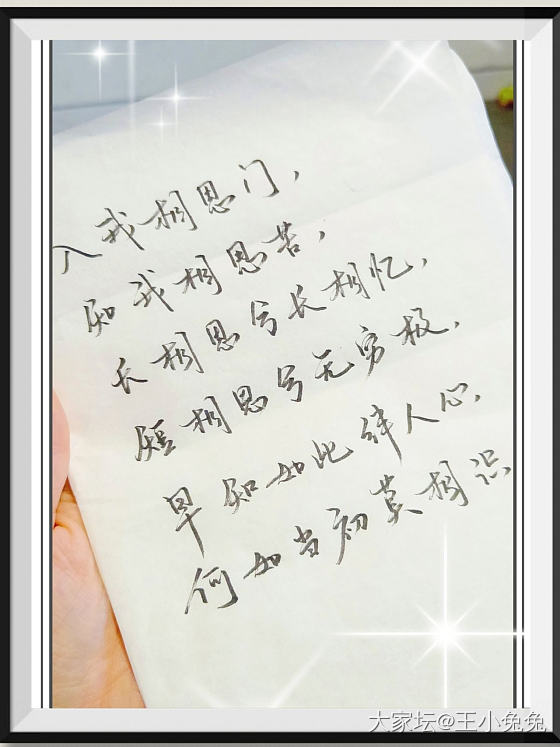 入我相思门，
知我相思苦，
长相思兮长相忆，
短相思兮无穷极，
早知如此绊人心，
何如当初莫相识
大家坛@王小兔兔